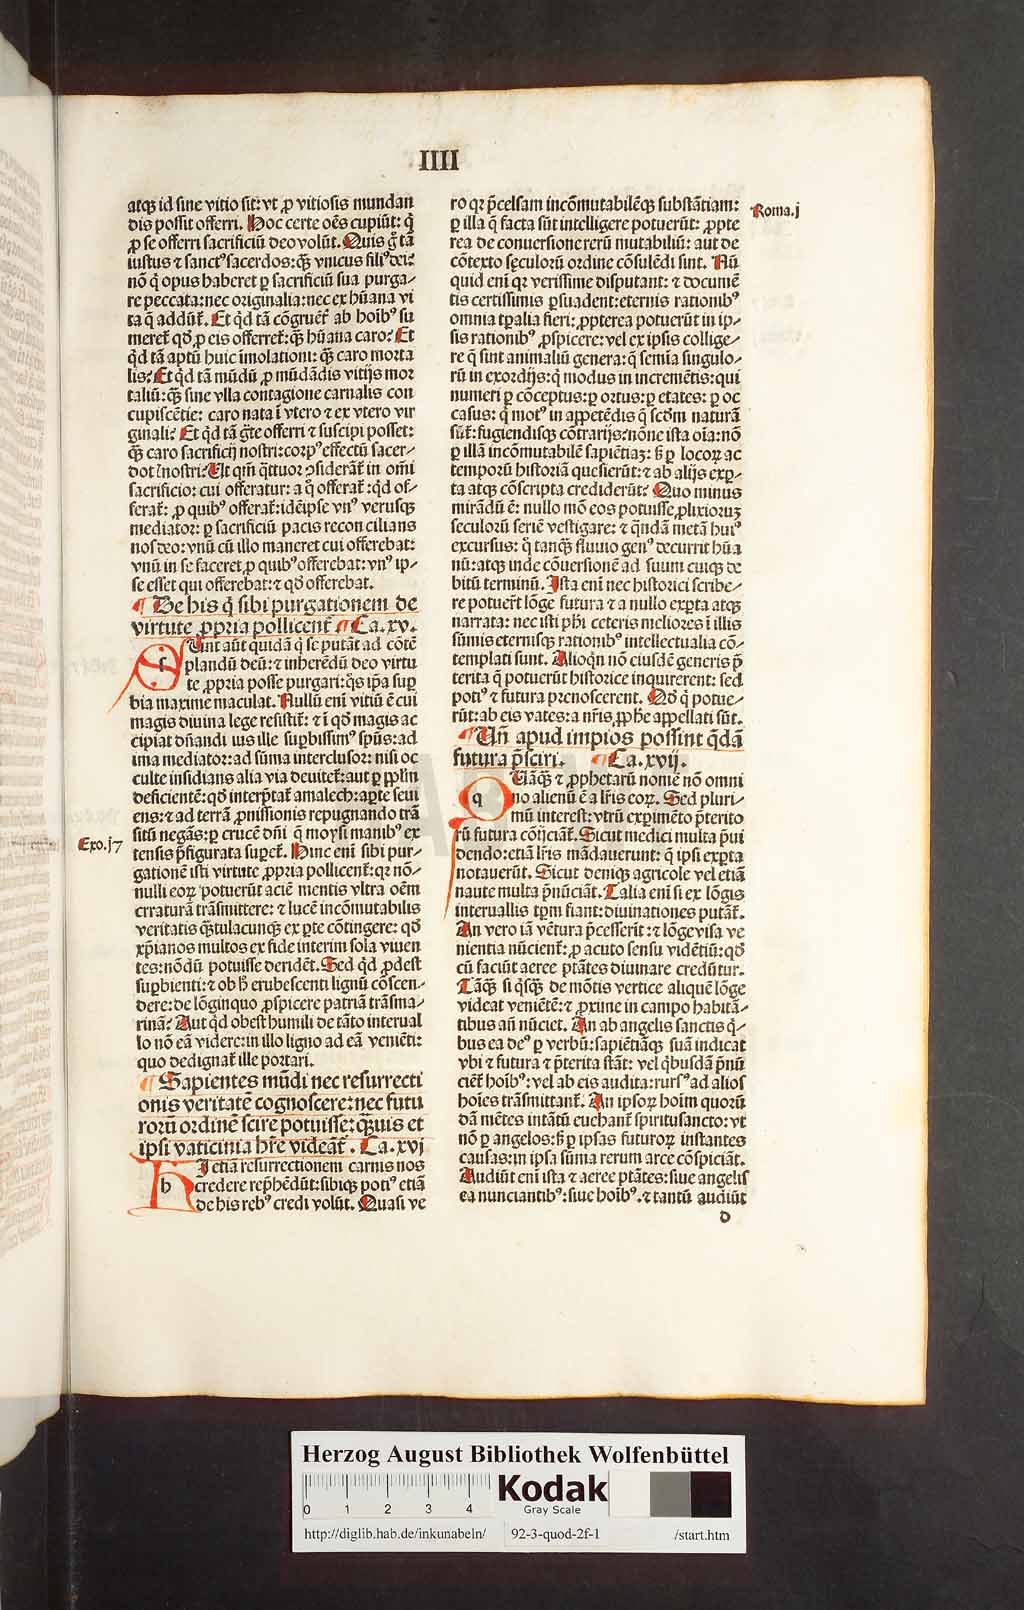 IIII
atqꝫ id sine vitio sit: vt ꝓ vitiosis mundan
dis possit offerri. Hoc certe oēs cupiūt: q̄
ꝓ se offerri sacrificiū deo volūt. Quis g̊ tā
iustus ⁊ sanctꝰ sacerdos: qꝫ̄ vnicus filiꝰ dei:
nō q̇ opus haberet ꝑ sacrificiū sua purga-
re peccata: nec originalia: nec ex hūana vi
ta q̄ addūt᷑. Et qḋ tā cōgruēt᷑ ab hoibꝰ su
meret᷑ qḋ ꝓ eis offerret᷑: qꝫ̄ hūana caro? Et
qḋ tā aptū huic imolationi: qꝫ̄ caro morta
lis? Et qḋ tā mūdū ꝓ mūdādis vitijs mor
taliū: qꝫ̄ sine vlla contagione carnalis con
cupiscētie: caro nata ī vtero ⁊ ex vtero vir
ginali? Et qḋ tā g̃te offerri ⁊ suscipi posset:
qꝫ̄ caro sacrificij nostri: corpꝰ effectū sacer-
dot̄ nostri? Ut qm̄ q̄ttuor ꝯsiderāt᷑ in om̄i
sacrificio: cui offeratur: a q̊ offerat᷑: qḋ of-
ferat᷑: ꝓ quibꝰ offerat᷑: idē ipse vnꝰ verusqꝫ
mediator: ꝑ sacrificiū pacis recon cilians
nos deo: vnū cū illo maneret cui offerebat:
vnū in se faceret ꝓ quibꝰ offerebat: vnꝰ ip-
se esset qui offerebat: ⁊ qḋ offerebat.
¶ De his q̇ sibi purgationem de
virtute ꝓpria pollicent᷑ ¶ Ca. xv.
f Unt aūt quidā q̇ se putāt ad cōtē
plandū deū: ⁊ inherēdū deo virtu
te ꝓpria posse purgari: q̊s ip̄a suꝑ
bia maxime maculat. Nullū eni vitiū ē cui
magis diuina lege resistit᷑: ⁊ ī qḋ magis ac
cipiat dn̄andi ius ille suꝑbissimꝰ spūs: ad
ima mediator: ad sūma interclusor: nisi oc
culte insidians alia via deuitet᷑: aut ꝑ ppl̄m
deficientē: qḋ interp̄tat᷑ amalech: aꝑte seui
ens: ⁊ ad terrā ꝓmissionis repugnando trā
sitū negās: ꝑ crucē dn̄i q̄ moysi manibꝰ ex
tensis p̄figurata suꝑet᷑. Hinc eni sibi pur-
gationē isti virtute ꝓpria pollicent᷑: qꝛ nō-
nulli eoꝝ potuerūt aciē mentis vltra oēm
crraturā trāsmittere: ⁊ lucē incōmutabilis
veritatis qꝫ̄tulacunqꝫ ex ꝑte cōtingere: qḋ
xp̄ianos multos ex fide interim sola viuen
tes: nōdū potuisse derident᷑. Sed qḋ ꝓdest
suꝑbienti: ⁊ ob h̄ erubescenti lignū cōscen-
dere: de lōginquo ꝓspicere patriā trāsma-
rinā? Aut qḋ obest humili de tāto interual
lo nō eā videre: in illo ligno ad eā venieti:
quo dedignat᷑ ille portari.
¶ Sapientes mūdi nec resurrecti
onis veritatē cognoscere: nec futu
rorū ordinē scire potuisse: qꝫ̄uis et
ipsi vaticinia hr̄e videāt᷑. Ca. xvj
h I etiā resurrectionem carnis nos
credere rep̄hēdūt: sibiqꝫ potiꝰ etiā
de his rebꝰ credi volūt. Quasi ve
Exo. j7
ro qꝛ p̄celsam incōmutabilēqꝫ substātiam:
ꝑ illa q̄ facta sūt intelligere potuerūt: ꝓpte
rea de conuersione rerū mutabiliū: aut de
cōtexto sęculorū ordine cōsulēdi sint. Nū
quid eni qꝛ verissime disputant: ⁊ documē
tis certissimis ꝑsuadent: eternis rationibꝰ
omnia tꝑalia fieri: ꝓpterea potuerūt in ip-
sis rationibꝰ ꝓspicere: vel ex ipsis collige-
re q̄ sint animaliū genera: q̄ semīa singulo-
rū in exordijs: q̇ modus in incremētis: qui
numeri ꝑ cōceptus: ꝑ ortus: ꝑ etates: ꝑ oc
casus: q̇ motꝰ in appetēdis q̄ scd̄m naturā
sūt: fugiendisqꝫ cōtrarijs? nōne ista oīa: nō
ꝑ illā incōmutabilē sapiētiaꝫ: sꝫ ꝑ locoꝝ ac
temporū historiā quesierūt: ⁊ ab alijs exꝑ-
ta atqꝫ cōscripta crediderūt? Quo minus
mirādū ē: nullo mō eos potuisse ꝓlixioruꝫ
seculorū seriē vestigare: ⁊ qn̄dā metā huiꝰ
excursus: q̊ tanqꝫ̄ fluuio genꝰ decurrit hūa
nū: atqꝫ inde cōuersionē ad suum cuiqꝫ de
bitū terminū. Ista eni nec historici scribe-
re potuer̄t lōge futura ⁊ a nullo exꝑta atqꝫ
narrata: nec isti ph̄i ceteris meliores ī illis
sūmis eternisqꝫ rationibꝰ intellectualia cō-
templati sunt. Alioqn̄ nō eiusdē generis p̄
terita q̄ potuerūt historice inquirerent: sed
potiꝰ ⁊ futura prenoscerent. Qḋ q̇ potue-
rūt: ab eis vates: a nr̄is ꝓph̄e appellati sūt.
¶ Un̄ apud impios possint q̄dā
futura p̄sciri. ¶ Ca. xvij.
q Uāqꝫ̄ ⁊ ꝓphetarū nomē nō omni
no alienū ē a lr̄is eoꝝ. Sed pluri-
mū interest: vtrū exꝑimēto p̄terito
rū futura cōijciāt᷑. Sicut medici multa p̄ui
dendo: etiā lr̄is mādauerunt: q̄ ipsi exꝑta
notauerūt. Sicut deniqꝫ agricole vel etiā
naute multa p̄nūciāt. Talia eni si ex lōgis
interuallis tꝑm fiant: diuinationes putāt᷑.
An vero iā vētura p̄cesserit: ⁊ lōge visa ve
nientia nūcient᷑: ꝓ acuto sensu vidētiū: qḋ
cū faciūt aeree p̄tātes diuinare credūtur.
Tāqꝫ̄ si q̇sqꝫ̄ de mōtis vertice aliquē lōge
videat veniētē: ⁊ ꝓxime in campo habitā-
tibus an̄ nūciet. An ab angelis sanctis q̇-
bus ea deꝰ ꝑ verbū: sapiētiāqꝫ suā indicat
vbi ⁊ futura ⁊ p̄terita stāt: vel q̇busdā p̄nū
ciēt᷑ hoībꝰ: vel ab eis audita: rursꝰ ad alios
hoīes trāsmittant᷑. An ipsoꝝ hoīm quorū
dā mētes intātū euehant᷑ spiritusancto: vt
nō ꝑ angelos: sꝫ ꝑ ipsas futuroꝝ instantes
causas: in ipsa sūma rerum arce cōspiciāt.
Audiūt eni ista ⁊ aeree p̄tātes: siue angelis
ea nunciantibꝰ: siue hoibꝰ. ⁊ tantū audiūt
Roma. j
d
Herzog August Bibliothek Wolfenbüttel
0 1 2 3 4
Kodak
Gray Scale
http://diglib.hab.de/inkunabeln/ 92-3-quod-2f-1 /start.htm